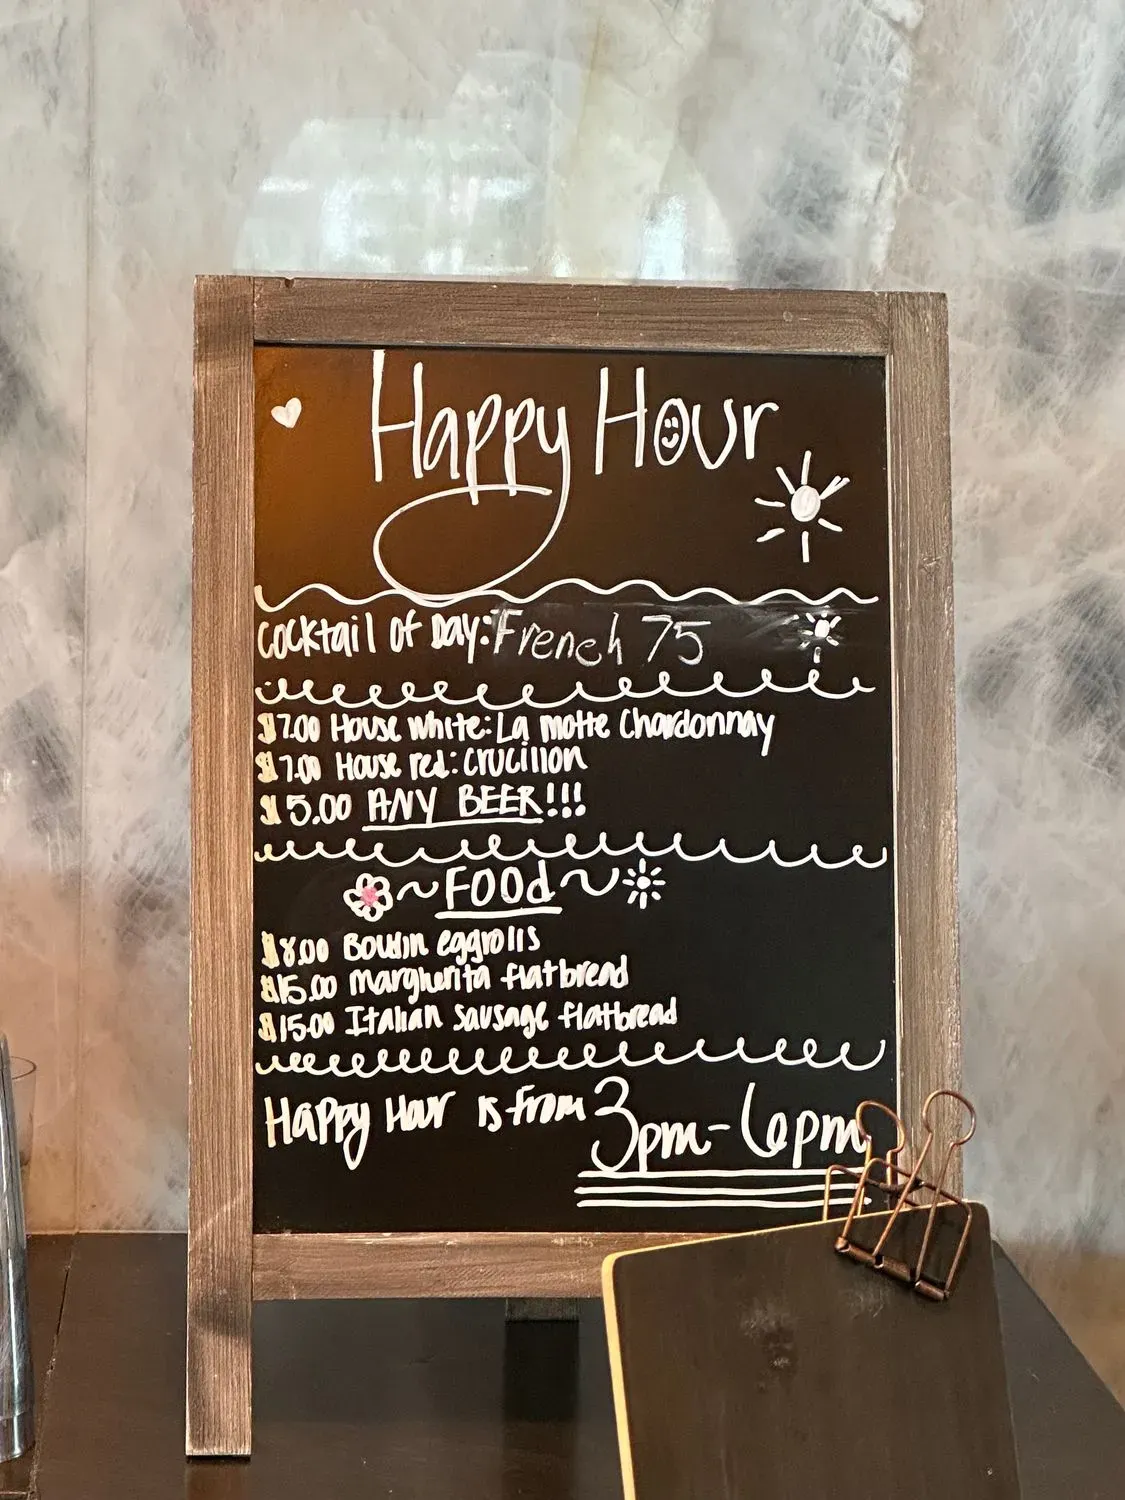 Happy Hour
Cocktail of Day: French 75
$7.00 House white: La motte Chardonnay
$7.00 House red: Crucillon
$5.00 ANY BEER!!!
~FOOd~
$8.00 Boudin eggrolls
$15.00 Margherita flatbread
$15.00 Italian Sausage flatbread
Happy Hour is from 3pm-6pm